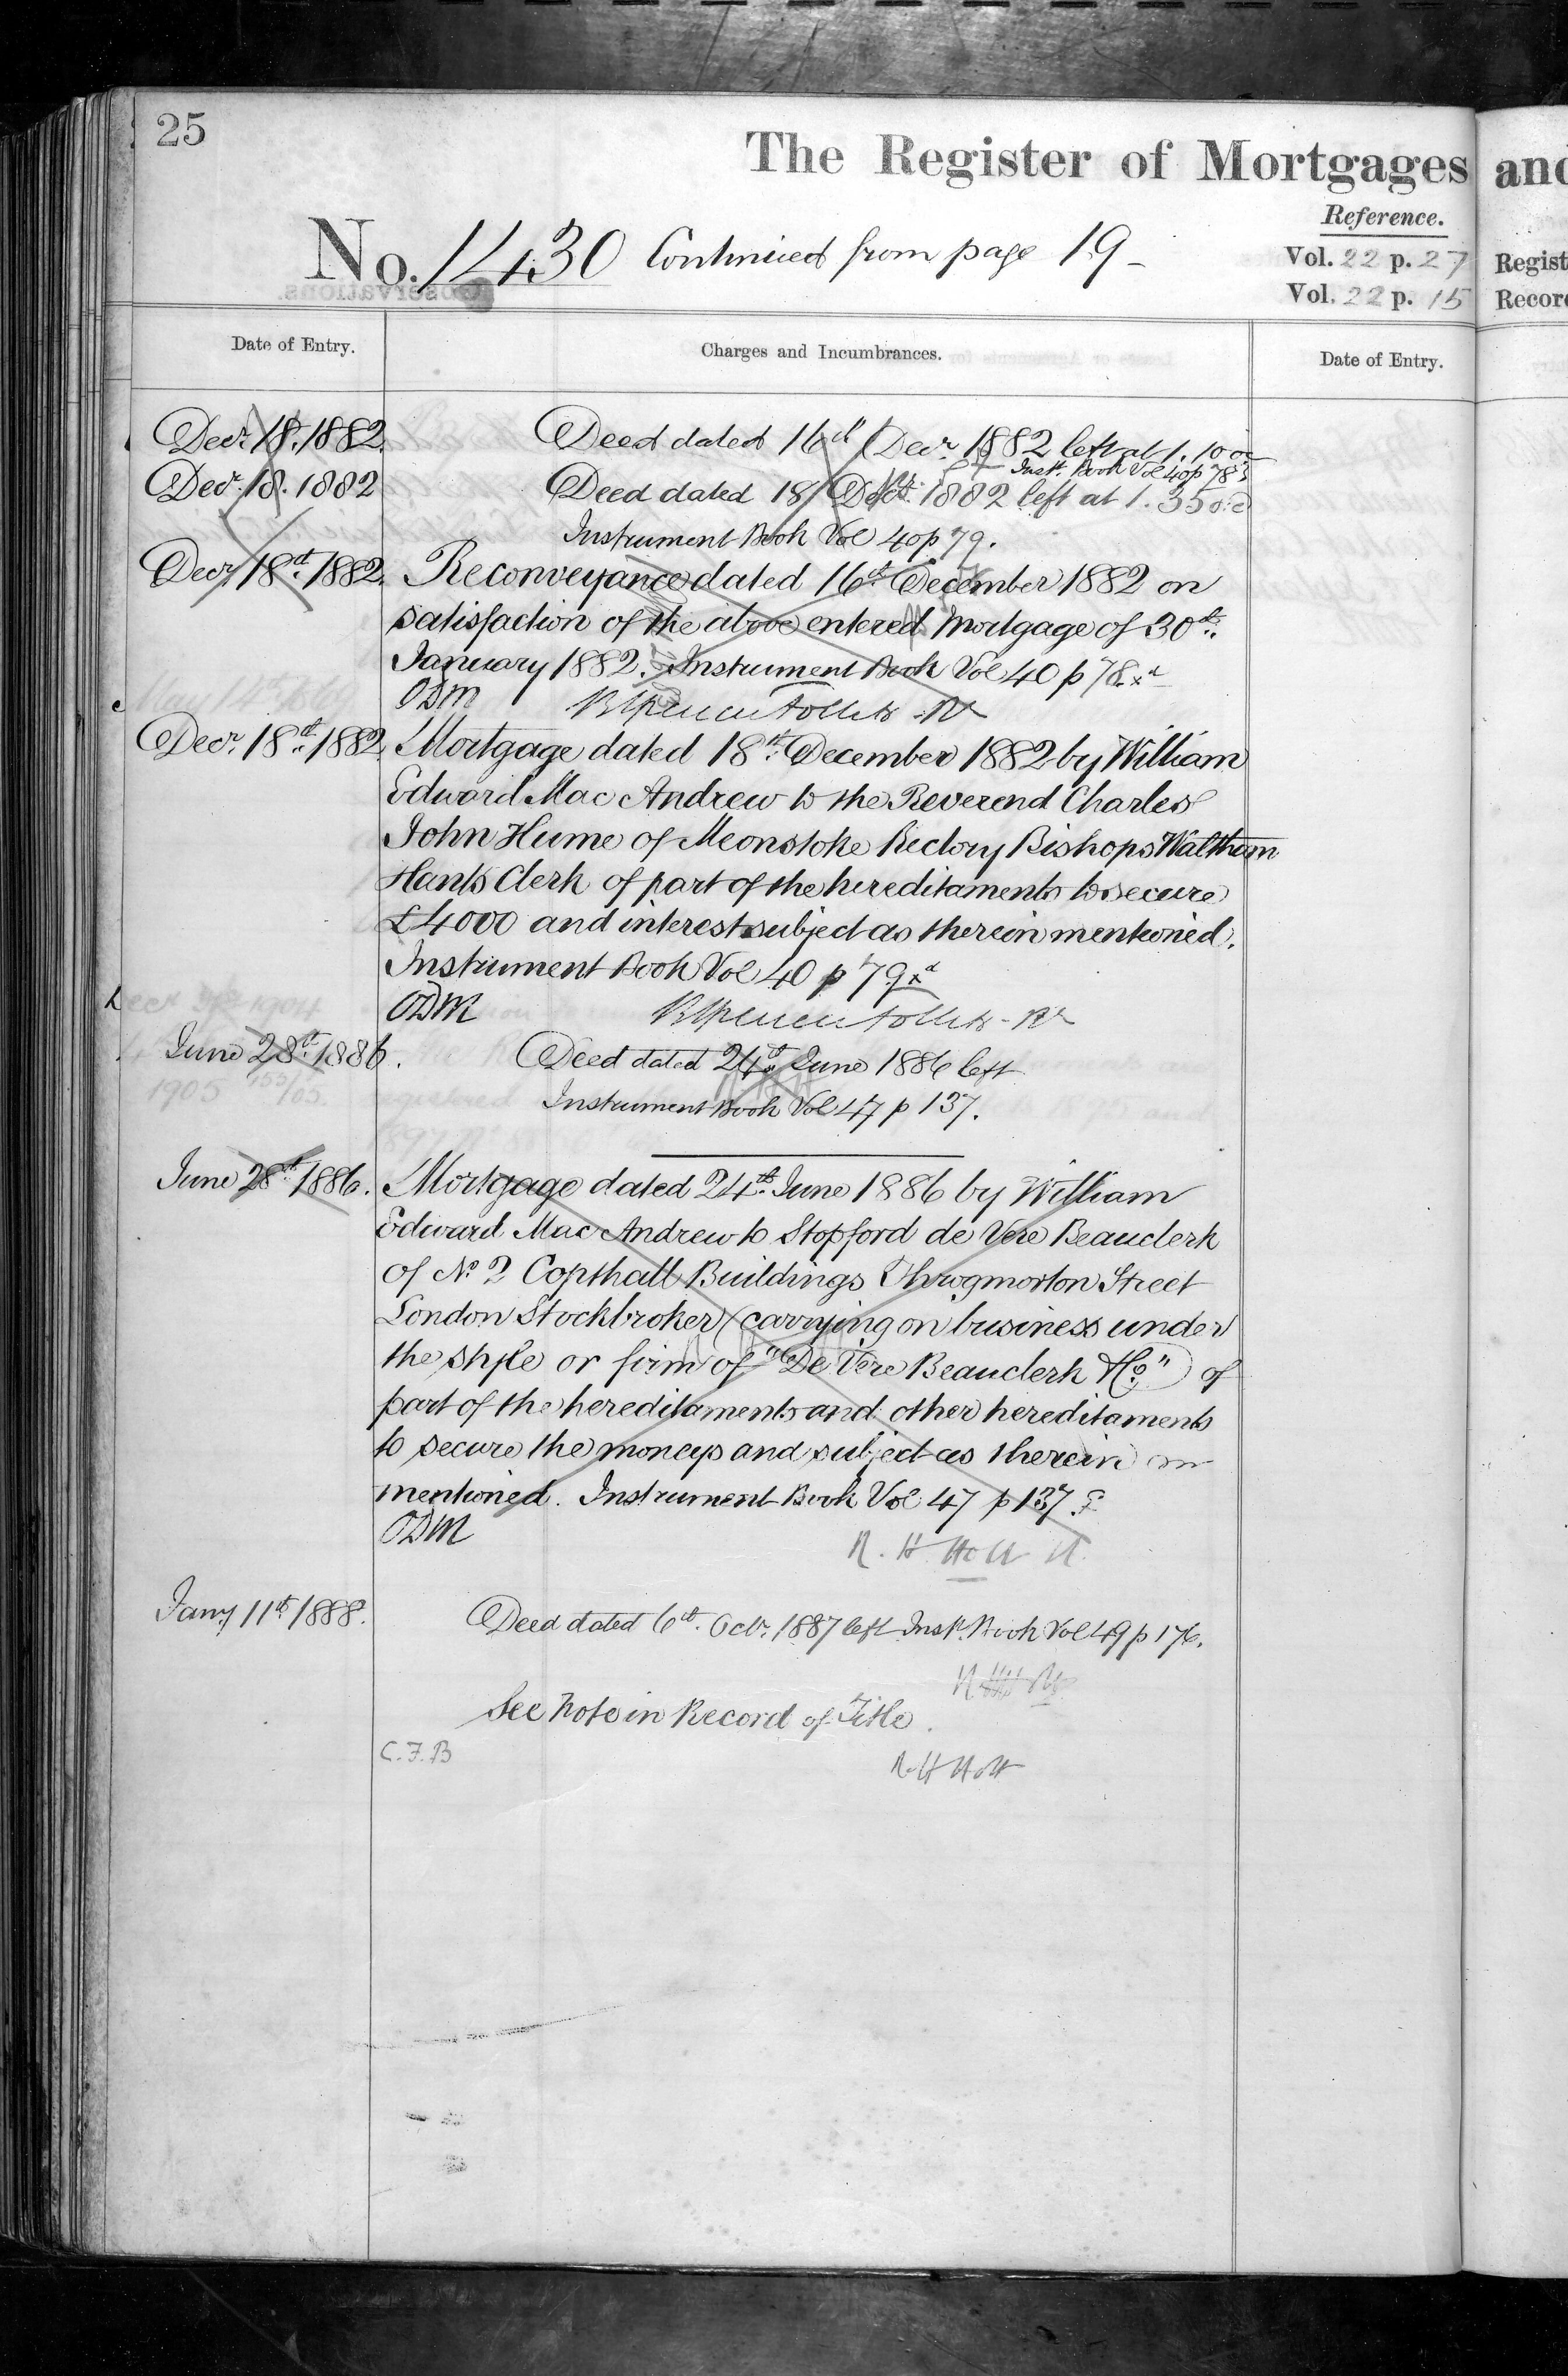 25
The Register of Mortgages and
Reference.
No. 1430 Continued from page 19 -
Vol. 22 p. 27 Regist
Vol. 22 p. 15 Recor
Date of Entry.
Charges and Incumbrances.
Date of Entry.
Decr. 18. 1882. Deed dated 16th Decr. 1882 left at 1. 10
Inst. Book Vol 40 p 78
Decr. 18. 1882 Deed dated 18 Decr. 1882 left at 1. 35
Instrument Book Vol 40 p 79.
Decr. 18th 1882. Reconveyance dated 16th December 1882 on
satisfaction of the above entered Mortgage of 30th
January 1882. Instrument Book Vol 40 p 78.
ODM
Decr. 18th 1882. Mortgage dated 18th December 1882 by William
Edward Mac Andrew to the Reverend Charles
John Hume of Meonstoke Rectory Bishops Waltham
Hants Clerk of part of the hereditaments to secure
£4000 and interest subject as therein mentioned.
Instrument Book Vol 40 p 79
ODM
June 28th 1886. Deed dated 24th June 1886 left
Instrument Book Vol 47 p 137.
June 28th 1886. Mortgage dated 24th June 1886 by William
Edward Mac Andrew to Stopford de Vere Beauclerk
of No 2 Copthall Buildings Throgmorton Street
London Stockbroker (carrying on business under
the style or firm of "De Vere Beauclerk & Co") of
part of the hereditaments and other hereditaments
to secure the moneys and subject as therein
mentioned. Instrument Book Vol 47 p 137.
ODM
R. H. Holt R.
Jany 11th 1888. Deed dated 6th Octr. 1887 left Inst. Book Vol 49 p 176.
See Note in Record of Title.
C.F.B
R H Holt